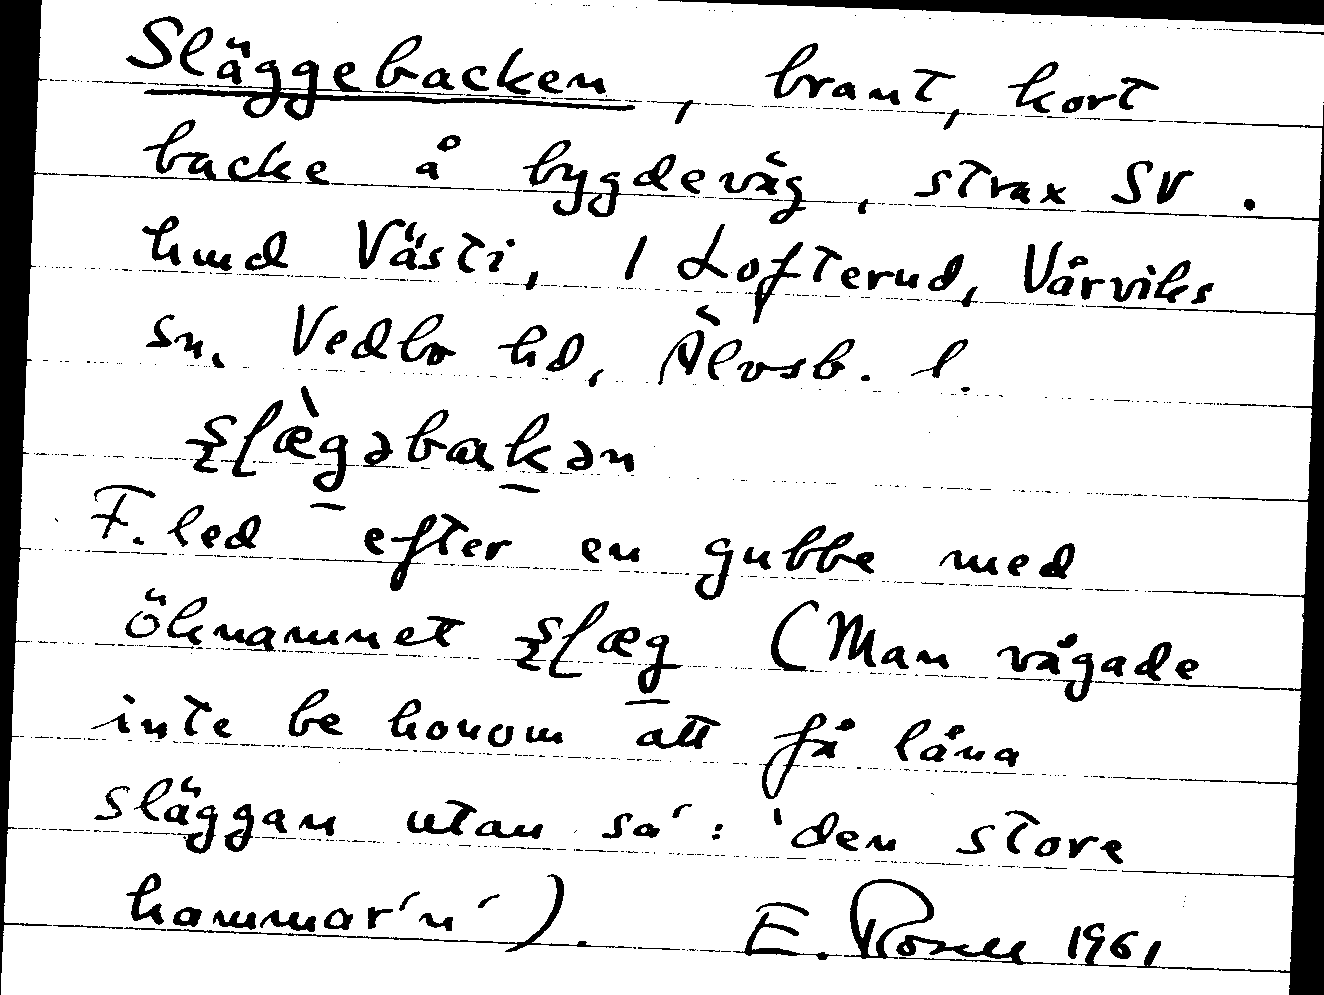 Släggebacken, brant, kort
backe å bygdeväg, strax SV.
hmd Västi, 1 Lofterud, Vårviks
sn. Vedbo hd, Älvsb. l.
ʂlæ̀gəbakən
F. led efter en gubbe med
öknamnet ʂlæg (Man vågade
inte be honom att få låna
släggan utan sa': 'den store
hammar'n'). E. Rosell 1961